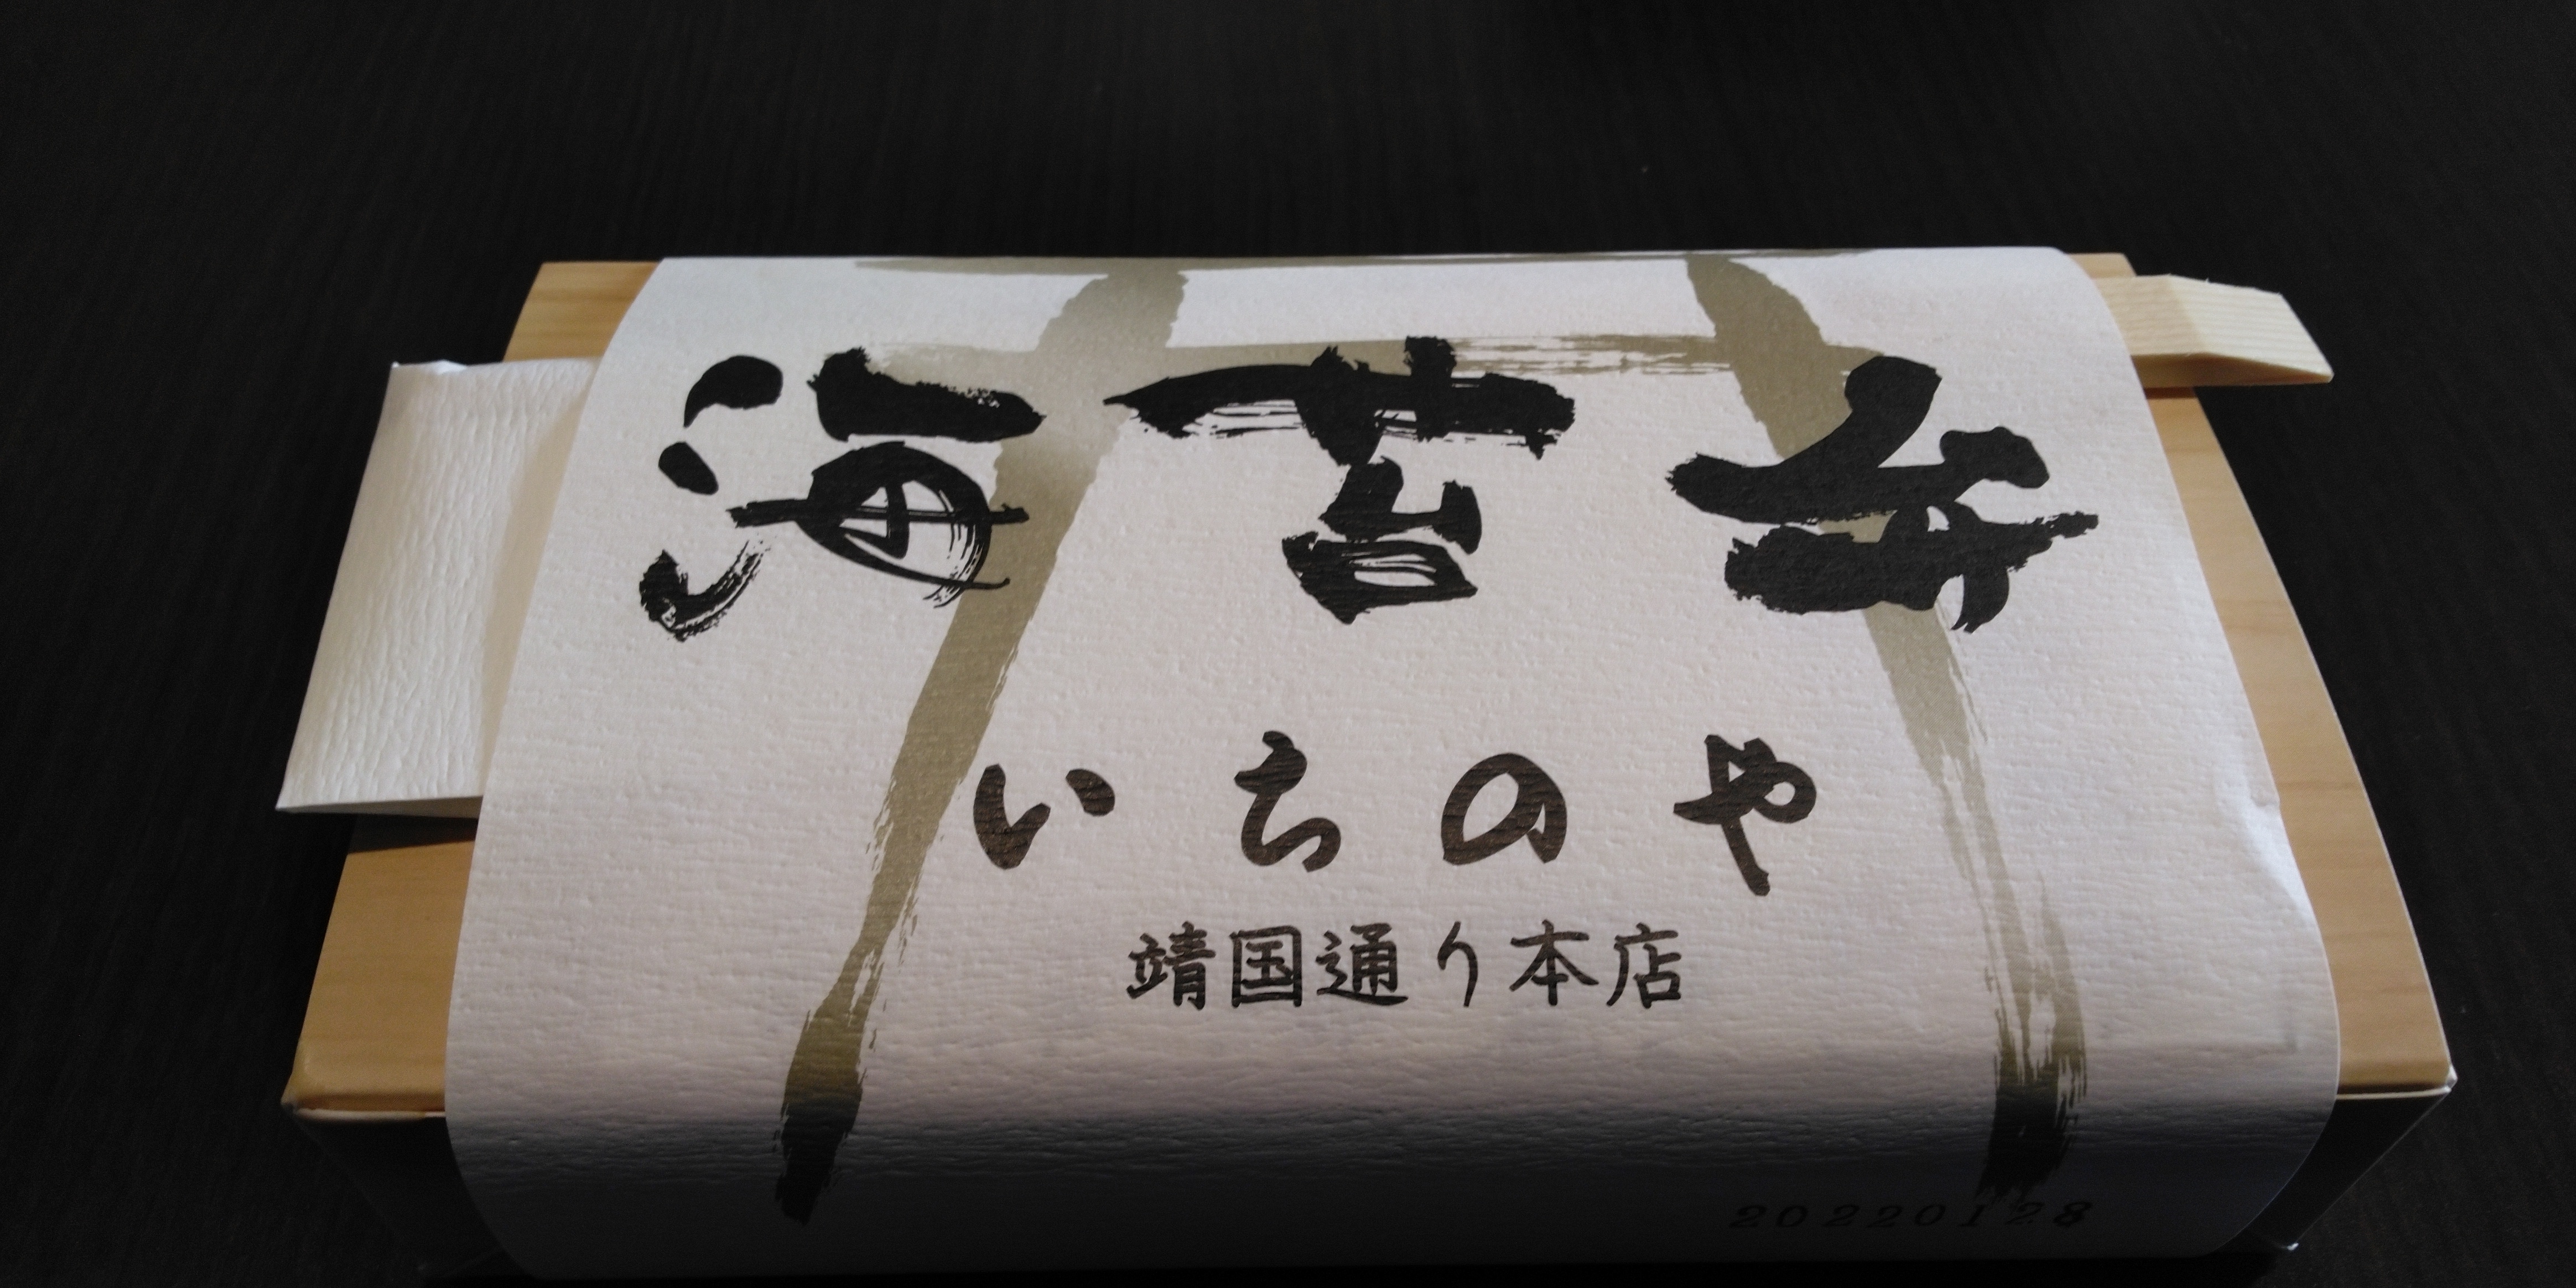 海苔弁
いちのや
靖国通り本店
20220128